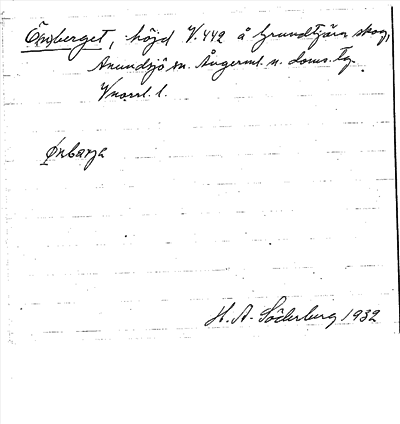 Önberget, höjd V. 442 å Grundtjärn skog,
Anundsjö sn. Ångerml. n. doms. tg.
Vnorrl. l.
Ønbarja
H. A. Söderberg 1932